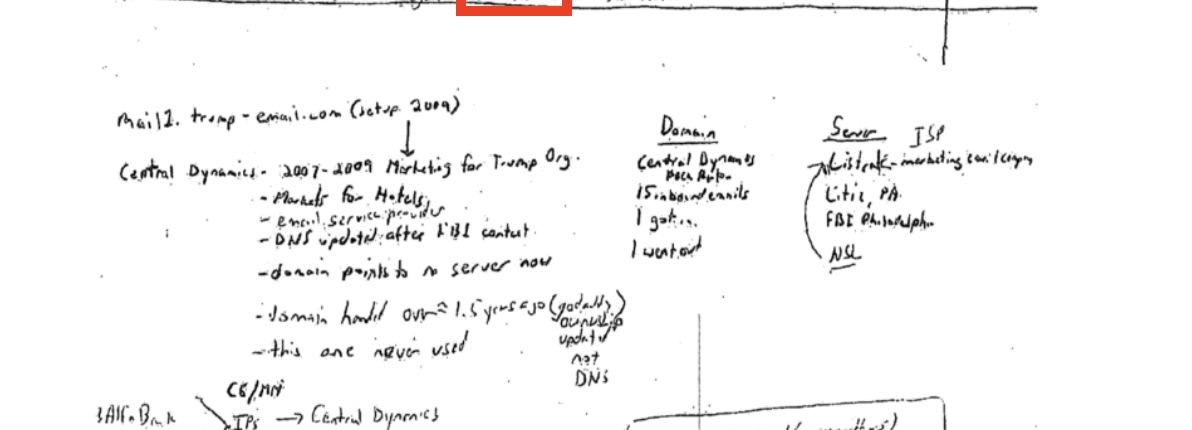 mail1.trump-email.com (setup 2009)
Central Dynamics - 2007-2009 Marketing for Trump Org.
- Markets for Hotels,
- email service provider
- DNS updated after FBI contact.
- domain points to no server now
- domain handed over ≈ 1.5 years ago (godaddy)
ownership
updated
not
DNS
- this one never used
Domain
Central Dynamics
15 inbound emails
1 got...
1 went out
Server ISP
Listrak - marketing email company
Litiz, PA
FBI Philadelphia
NSL
Alfa Bank
IPs → Central Dynamics